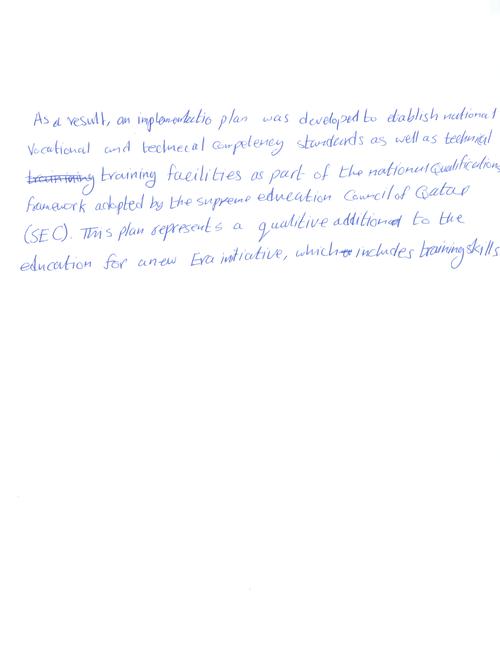 As a result, an implementatio plan was developed to etablish national
vocational and technecal competency standards as well as technical
training facilities as part of the national Qualifications
framework adopted by the supreme education Council of Qatar
(SEC). This plan represents a qualitive additional to the
education for a new Era intiative, which includes training skills